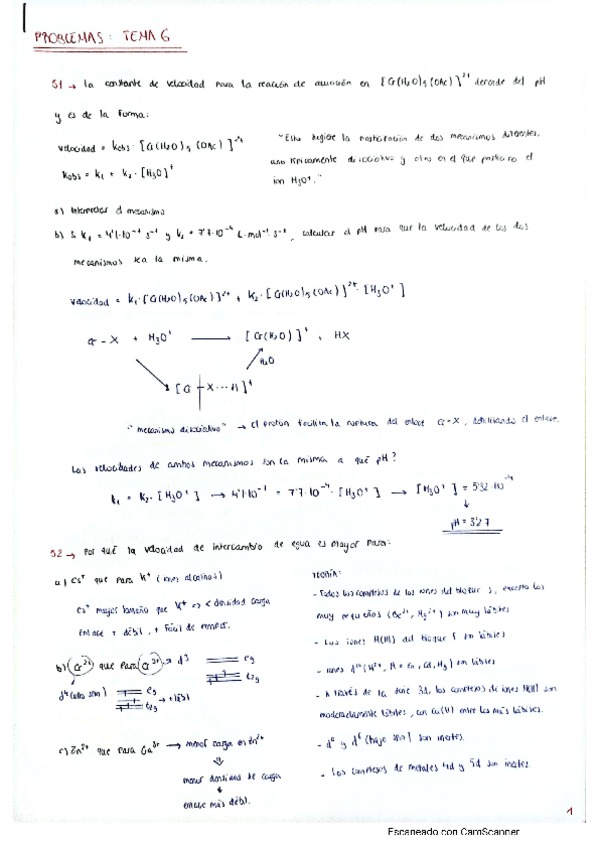 PROBLEMAS: TEMA 6
51 → La constante de velocidad para la reacción de acuación en [Cr(H₂O)₅(OAc)]²⁺ depende del pH
y es de la forma:
velocidad = kobs · [Cr(H₂O)₅(OAc)]²⁺
kobs = k₁ + k₂·[H₃O]⁺
"Esto sugiere la participación de dos mecanismos diferentes,
uno típicamente disociativo y otro en el que participa el
ion H₃O⁺."
a) Interpretar el mecanismo
b) Si k₁ = 4'1·10⁻⁷ s⁻¹ y k₂ = 7'7·10⁻⁴ L·mol⁻¹·s⁻¹, calcular el pH para que la velocidad de los dos
mecanismos sea la misma.
velocidad = k₁·[Cr(H₂O)₅(OAc)]²⁺ + k₂·[Cr(H₂O)₅(OAc)]²⁺·[H₃O⁺]
Cr-X + H₃O⁺ → [Cr(H₂O)]⁺ + HX
H₂O
[Cr-X···H]⁺
"mecanismo disociativo" → el protón facilita la ruptura del enlace Cr-X, debilitando el enlace.
Las velocidades de ambos mecanismos son la misma a qué pH?
k₁ = k₂·[H₃O⁺] → 4'1·10⁻⁷ = 7'7·10⁻⁴·[H₃O⁺] → [H₃O⁺] = 5'32·10⁻⁴
pH = 3'27
52 → Por qué la velocidad de intercambio de agua es mayor para:
a) Cs⁺ que para K⁺ (iones alcalinos)
Cs⁺ mayor tamaño que K⁺ => < densidad carga
enlace + débil, + fácil de romper.
b) Cr²⁺ que para Cr³⁺ → d³
eg
t2g
d⁴ (alto spin)
eg
t2g
→ + lábil
c) Zn²⁺ que para Ga³⁺ → menor carga en Zn²⁺
menor densidad de carga
enlace más débil.
TEORÍA:
- Todos los complejos de los iones del bloque s, excepto los
muy pequeños (Be²⁺, Mg²⁺) son muy lábiles
- Los iones M(III) del bloque f son lábiles
- iones d¹⁰ (M²⁺, M = Zn, Cd, Hg) son lábiles
- A través de la serie 3d, los complejos de iones M(II) son
moderadamente lábiles, con Cu(II) entre los más lábiles.
- d³ y d⁶ (bajo spin) son inertes.
- Los complejos de metales 4d y 5d son inertes.
1
Escaneado con CamScanner